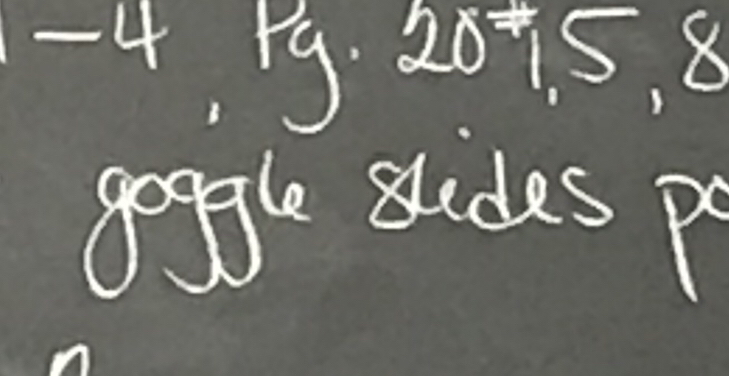 1-4, Pg. 20 #1,5,8
goggle slides po